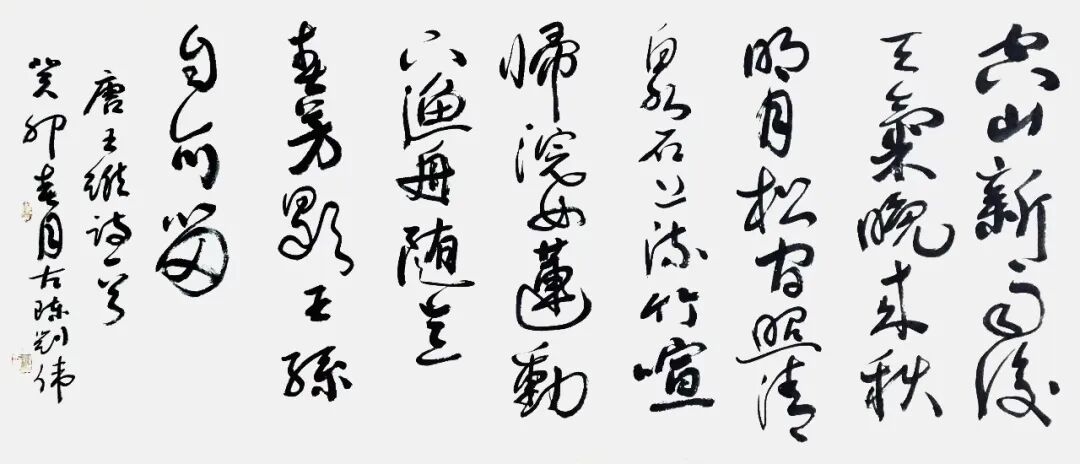 空山新雨後
天氣晚來秋
明月松間照清
泉石上流竹喧
歸浣女蓮動
下漁舟随意
春芳歇王孫
自可留
唐王維詩一首
癸卯春月古陳劉偉